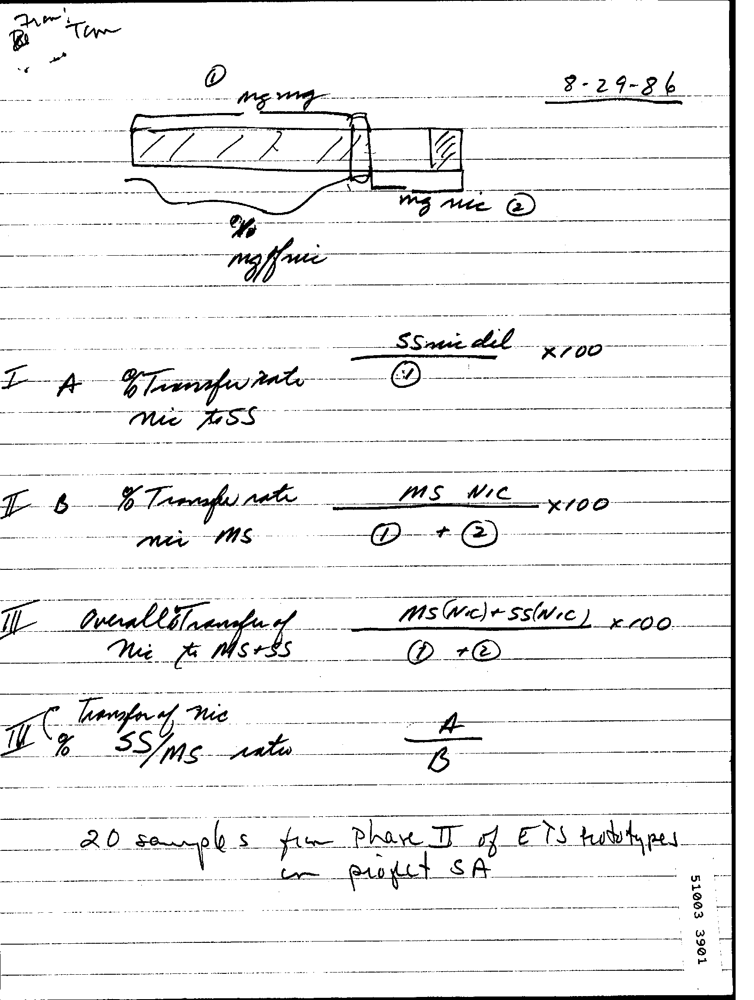 From: Tom
8-29-86
①
mg
mg nic ②
%
nic
I A % Transfer rate nic to SS
SS nic dil / ① × 100
II B % Transfer rate nic MS
MS NIC / ① + ② × 100
III Overall % Transfer of Nic to MS+SS
MS(NIC) + SS(NIC) / ① + ② × 100
IV ( Transfer of nic
% SS/MS ratio
A / B
20 samples from Phase II of ETS prototypes
in project SA
51003 3901